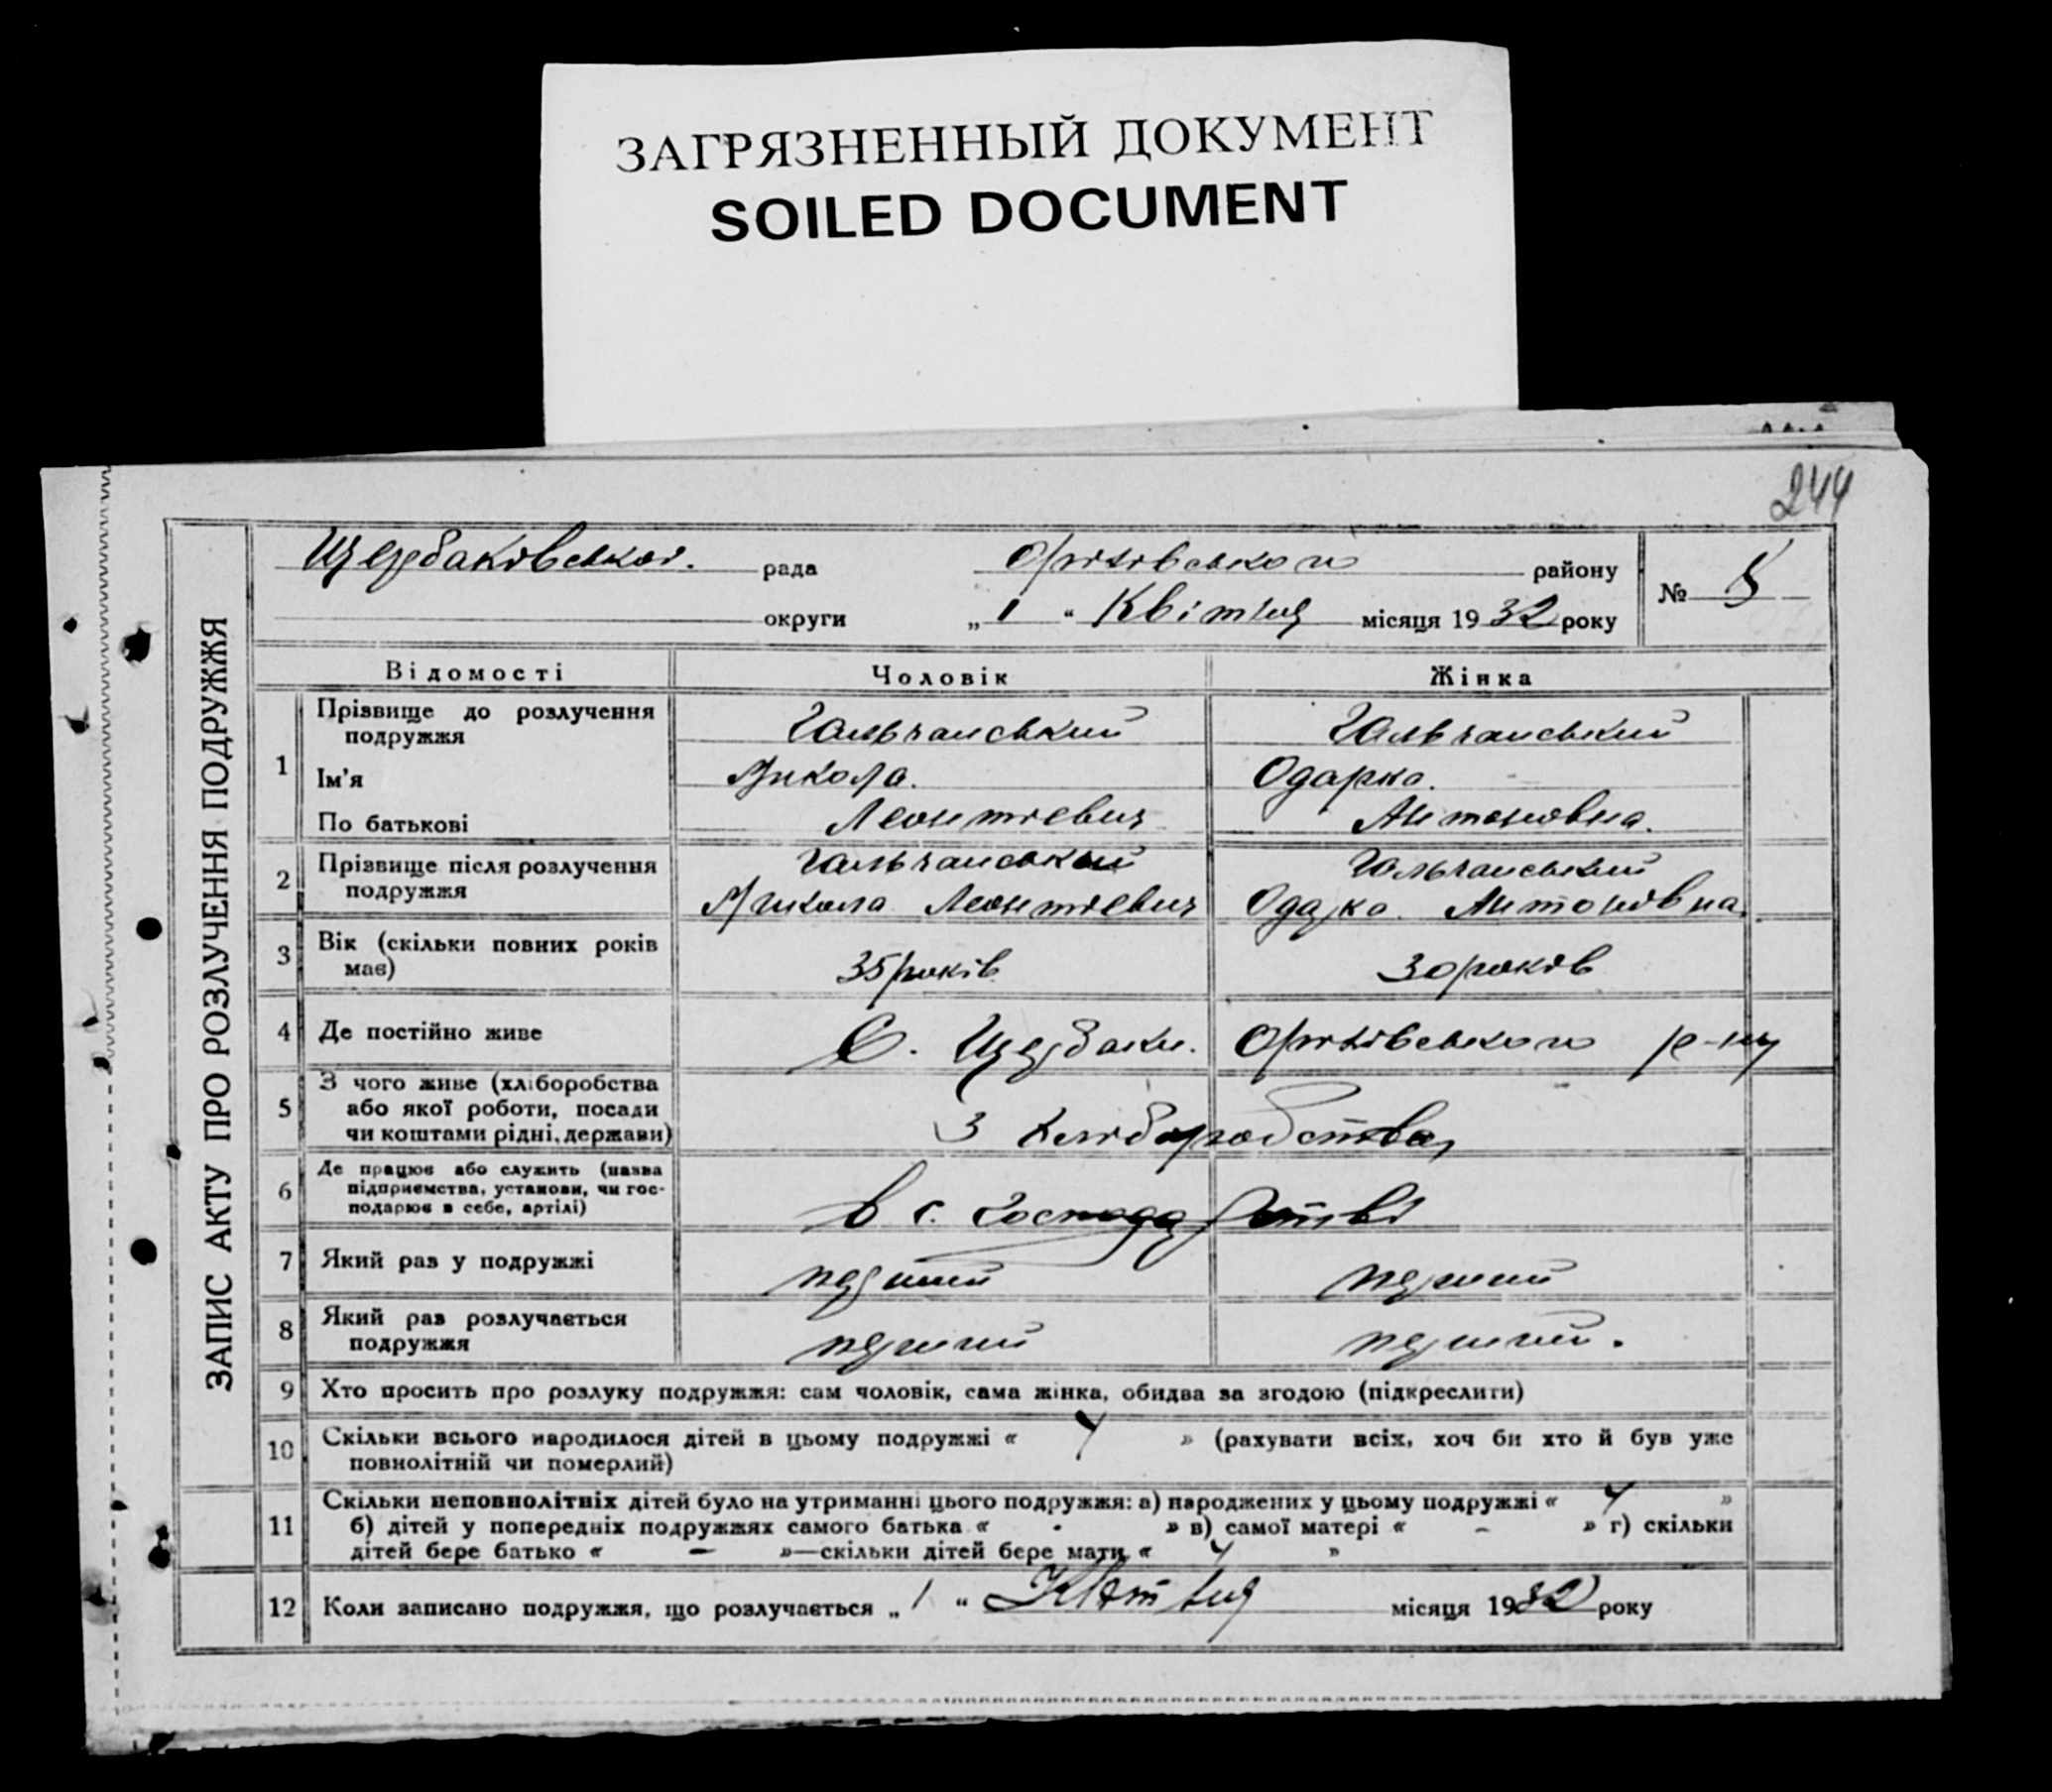 ЗАГРЯЗНЕННЫЙ ДОКУМЕНТ
SOILED DOCUMENT
244
ЗАПИС АКТУ ПРО РОЗЛУЧЕННЯ ПОДРУЖЖЯ
Щербаківської рада районy
№ 8
округи „ 1 “ Квітня місяця 1932 року
Відомості Чоловік Жінка
1 Прізвище до розлучення подружжя Гальчанський Гальчанський
Ім'я Микола. Одарка.
По батькові Леонтієвич Антонівна.
2 Прізвище після розлучення Гальчанський Гальчанський
подружжя Микола Леонтієвич Одарка. Антонівна.
3 Вік (скільки повних років
має) 35 років 30 років
4 Де постійно живе С. Щербаки. р-ну
5 З чого живе (хліборобства
або якої роботи, посади
чи коштами рідні, держави) З хліборобства
6 Де працює або служить (назва
підприємства, установи, чи гос-
подарює в себе, артілі) в с. господарстві
7 Який раз у подружжі перший перший
8 Який раз розлучається
подружжя перший перший.
9 Хто просить про розлуку подружжя: сам чоловік, сама жінка, обидва за згодою (підкреслити)
10 Скільки всього народилося дітей в цьому подружжі « 4 » (рахувати всіх, хоч би хто й був уже
повнолітній чи померлий)
11 Скільки неповнолітніх дітей було на утриманні цього подружжя: а) народжених у цьому подружжі « 4 »
б) дітей у попередніх подружжях самого батька « - » в) самої матері « - » г) скільки
дітей бере батько « — »—скільки дітей бере мати « 4 »
12 Коли записано подружжя, що розлучається „ 1 “ Квітня місяця 1932 року